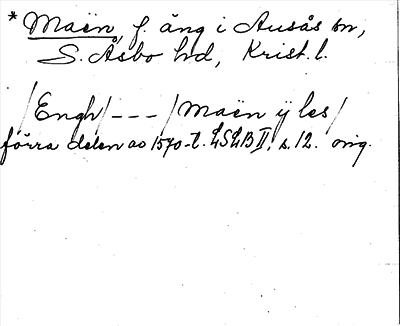 * Maën, f. äng i Ausås sn,
S. Åsbo hd, Krist. l.
/Engh/ --- /Maën ÿ les/
förra delen av 1570-t. LSLB II, s. 12. orig.